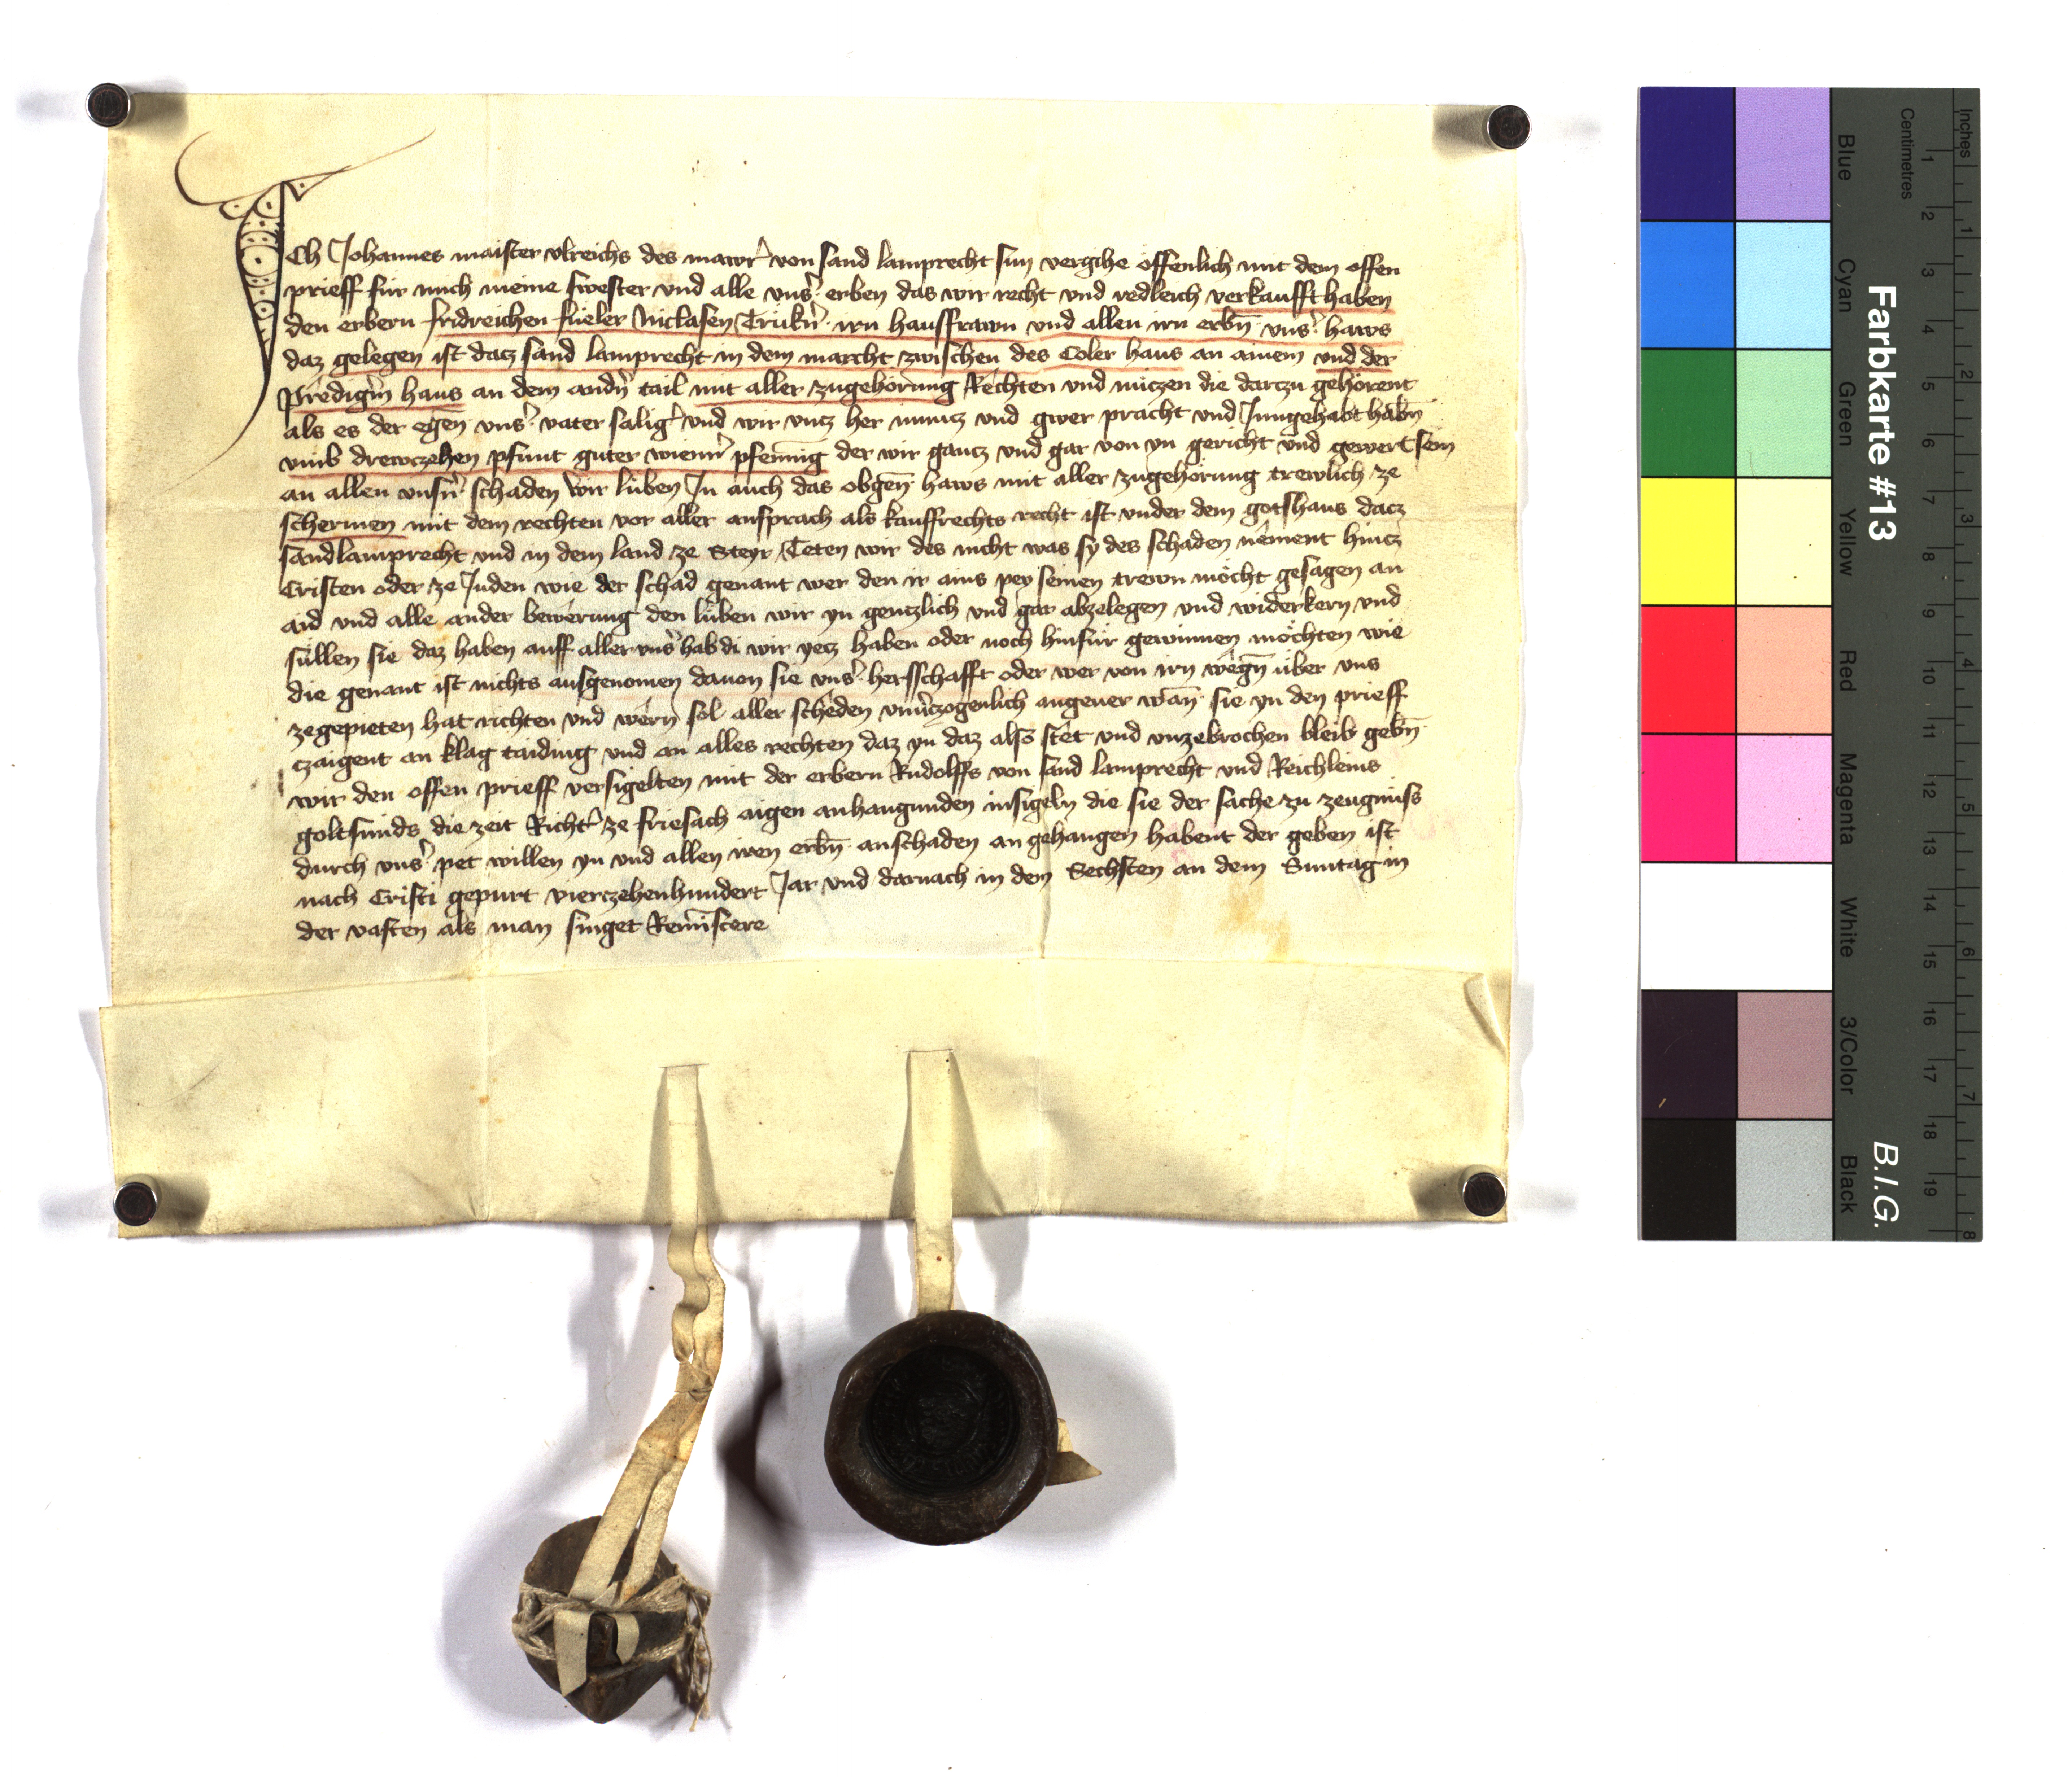 ICh Johannes maister vlreichs des mawr̄ von sand lamprecht sun vergihe offenlich mit dem offen
prieff für mich meine swester vnd alle vns̄ erben das wir recht vnd redleich verkaufft haben
den erbern fridreichen flieler Niclasen Trukn̄ irn hausfrawn vnd allen irn erbn̄ vns̄ haws
daz gelegen ist dacz sand lamprecht in dem marcht zwischen des Coler haus an ainem vnd der
predign̄ haus an dem andn̄ tail mit aller zugehörung Rechten vnd nüczen die darczu gehörent
als es der egen̄ vns̄ vater saliḡ vnd wir vncz her in nucz vnd gwer pracht vnd Inngehabt habn̄
vmb drewczehen pfunt guter wienn̄ pfennīg der wir gancz vnd gar von yn gericht vnd gewert sein
an allen vnsn̄ schaden Wir lüben In auch das obgen̄ haws mit aller zugehörung trewlich ze
schermen mit dem rechten vor aller ansprach als kauffrechts recht ist vnder dem gotshaus dacz
sandlamprecht vnd in dem land ze Steyr Teten wir des nicht was sy des schaden nement hincz
Cristen oder ze Juden wie der schad genant wer den ir ains pey seinen trewn möcht gesagen an
aid vnd alle ander bewerung den lüben wir yn genczlich vnd gar abzelegen vnd widerkern vnd
süllen sie daz haben auff aller vns̄ hab di wir yecz haben oder noch hinfür gewinnen möchten wie
die genant ist nichts ausgenomen dauon sie vns̄ herschafft oder wer von irn wegn̄ über vns
zegepieten hat richten vnd wern sol aller scheden vnūczogenlich angeuer wan̄ sie yn den prieff
czaigent an klag taiding vnd an alles rechten daz yn daz also stet vnd vnzebrochen bleib gebn̄
wir den offen prieff versigelten mit der erbern Rudolffs von sand lamprecht vnd Reichleins
goltsmids die zeit Richt̄ ze friesach aigen anhangunden insigeln die sie der sache zu zeugnüss
durch vns̄ pet willen yn vnd allen iren erbn̄ anschaden an gehangen habent der geben ist
nach Cristi gepurt vierczehenhundert Jar vnd darnach in dem Sechsten an dem Suntag in
der vasten als man singet Remīscere
Farbkarte #13
B.I.G.
Inches
Centimetres
Blue
Cyan
Green
Yellow
Red
Magenta
White
3/Color
Black
1 2 3 4 5 6 7 8 9 10 11 12 13 14 15 16 17 18 19
1 2 3 4 5 6 7 8